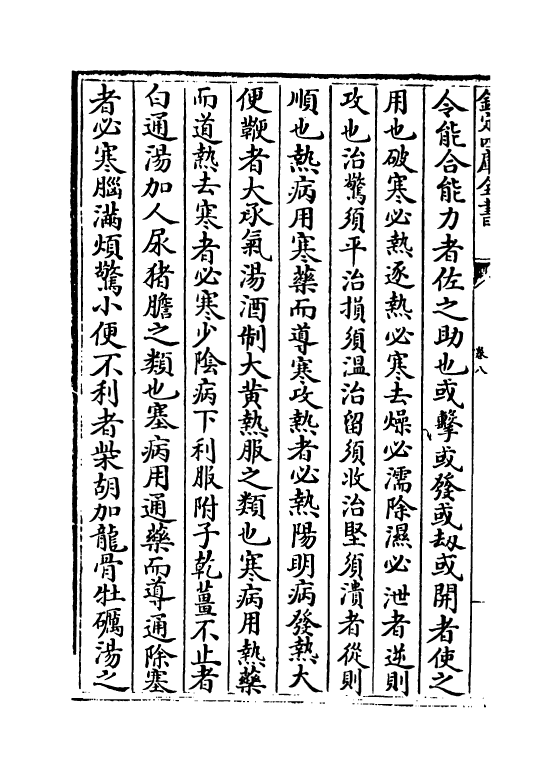 欽定四庫全書
卷八
令能合能力者佐之助也或擊或發或刼或開者使之
用也破寒必熱逐熱必寒去燥必濡除濕必泄者逆則
攻也治驚須平治損須温治留須收治堅須潰者從則
順也熱病用寒藥而導寒攻熱者必熱陽明病發熱大
便鞕者大承氣湯酒制大黄熱服之類也寒病用熱藥
而道熱去寒者必寒少隂病下利服附子乾薑不止者
白通湯加人尿猪膽之類也塞病用通藥而導通除塞
者必寒腦滿煩驚小便不利者柴胡加龍骨牡礪湯之